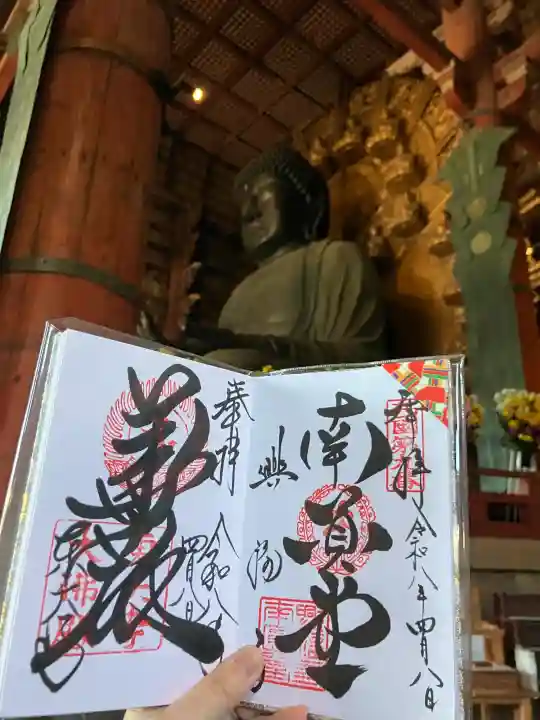 奉拝 令和八年四月八日
南圓堂
興福
奉拝 令和八年四月八
華嚴
東大寺